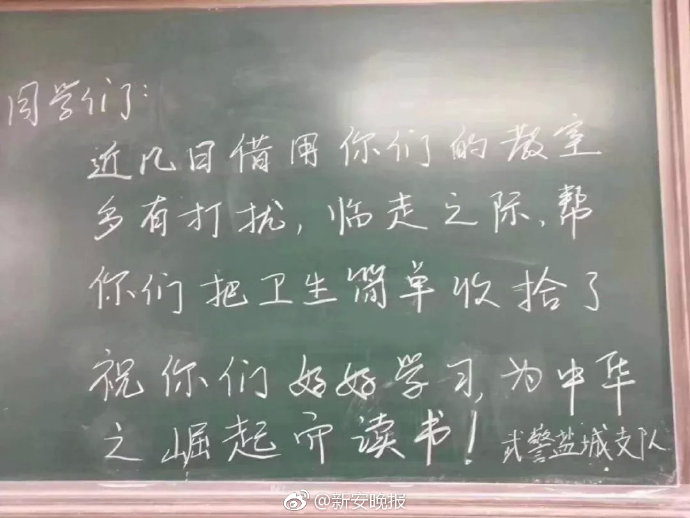 同学们：
近几日借用你们的教室
多有打扰，临走之际，帮
你们把卫生简单收拾了
祝你们好好学习，为中华
之崛起而读书！武警盐城支队
@新安晚报